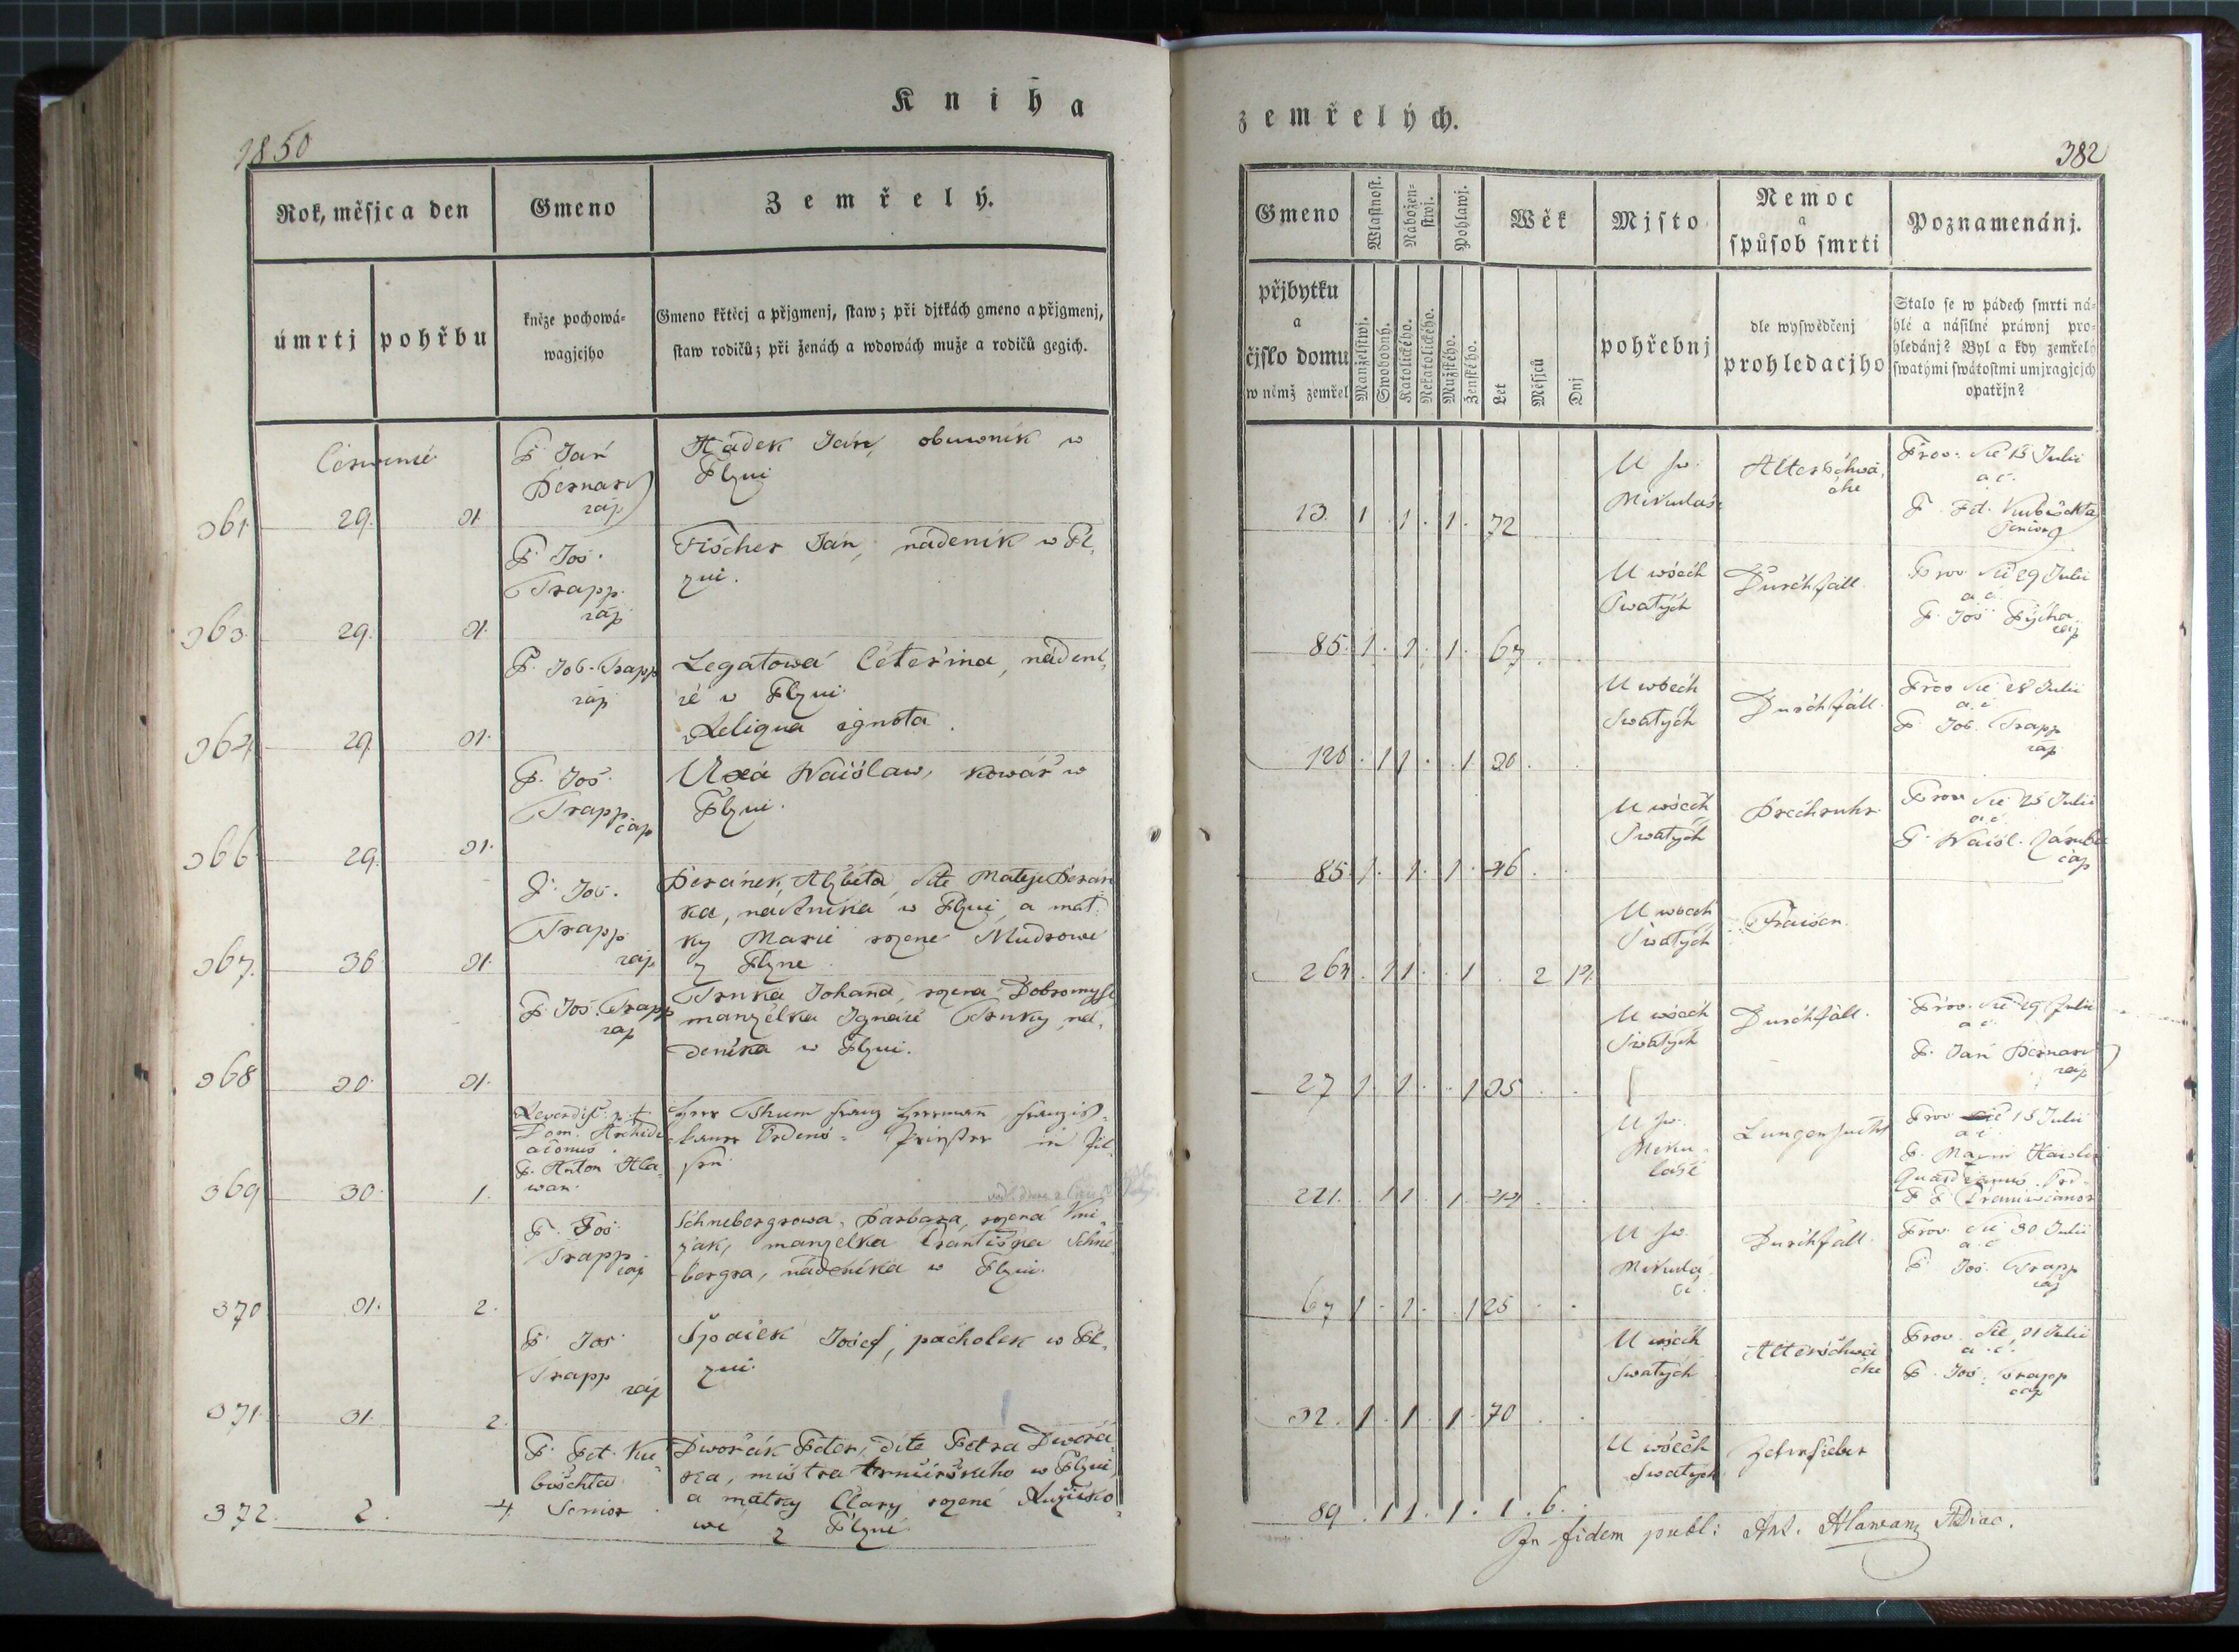 Kniha
zemřelých.
1850
382
Rok, měsjc a den
Gmeno
Zemřelý.
úmrtj
pohřbu
kněze pochowá-
wagjcjho
Gmeno křtěcj a přjgmenj, staw; při djtkách gmeno a přjgmenj,
staw rodičů; při ženách a wdowách muže a rodičů gegich.
Gmeno
Wlastnost.
Nábožen-
stwj.
Pohlawj.
Wěk
Mjsto
Nemoc
a
spůsob smrti
Poznamenánj.
přjbytku
a
čjslo domu
w němž zemřel
Manželstwj.
Swobodný.
Katolického.
Nekatolického.
Mužského.
Ženského.
Let
Měsjců
Dnj
pohřebnj
dle wyswědčenj
prohledacjho
Stalo se w pádech smrti ná-
hlé a násilné práwnj pro-
hledánj? Byl a kdy zemřelý
swatými swátostmi umjragjcjch
opatřjn?
361. 29. 31.
P. Jan
Bernard
cap
Hádek Jan, obuwnik w
Plzni
13. 1 . 1 . 1 . 72
U sw.
Mikuláše
Altersschwä-
che
Prov. die 15 Julii
a. c.
P. Pet. Kubischta
Senior
363. 29. 31.
P. Jos.
Trapp
cap
Fischer Jan, nádenik w Pl-
zni.
85. 1. 1. 1. 67
U wšech
Swatých
Durchfall.
Prov die 29 Julii
a. c.
P. Jos
cap
364. 29. 31.
P. Jos. Trapp
cap
Legatowá
w Plzni
Reliqua ignota.
120 . 1 1 . . 1. 30
U wšech
Swatých
Durchfall.
Prov die 28 Julii
a. c.
P. Jos. Trapp
cap
366 29. 31.
P. Jos.
Trapp
cap
kowář w
Plzni.
85. 1. 1. 1. 46
U wšech
Swatých
Brechruhr
Prov die 25 Julii
a. c.
cap
367. 30 31.
P. Jos.
Trapp
cap
Beránek, Alžběta, dítě Matěje Berán-
ka, nádenika w Plzni, a mat-
ky Marie rozené Mudrowé
z Plzně.
264 . 1 1 . . 1 . 2 14.
U wšech
Swatých
Fraisen.
368 30. 31.
P. Jos. Trapp
cap
Trnka Johana, rozená Dobromysl
manželka Ignáce Trnky, ná-
denika w Plzni.
27 1. 1. . 1 35
U wšech
Swatých
Durchfall.
Prov. die 29 Julii
a. c.
P. Jan Bernard
cap
369 30. 1.
Reverdiss. p. t.
Dom. Archidi-
aconus
P. Anton Hla-
wan.
Herr Thum Franz Herrmann, Franzis-
kaner Ordens- Priester in Pil-
sen.
221. . 1 1 . 1. 44
U sw.
Miku-
láše
Lungensucht
Prov 15 Julii
a. c.
370 31. 2.
P. Jos
Trapp
cap
Schnebergrowa, Barbara, rozená
manželka Františka Schne-
bergra, nádenika w Plzni.
67 1 . 1 . . 1 25
U sw.
Mikulá-
še.
Durchfall.
Prov. die 30 Julii
a. c.
P. Jos. Trapp
cap
371. 31. 2.
P. Jos
Trapp
cap
Špaček Josef, pacholek w Pl-
zni.
32. 1 . 1 . 1. 70
U wšech
Swatých
Altersschwä-
che
Prov. die 31 Julii
a. c.
P. Jos. Trapp
cap
372. 2. 4.
P. Pet. Ku-
bischta
Senior
Dwořák Peter, dítě Petra Dwořá-
ka, mistra w Plzni,
a matky Clary rozené
z Plzně.
89 . 1 1 . 1. 1. 6.
U wšech
Swatých
Zehrfieber
In fidem publ: Ant. Hlawan ADiac.